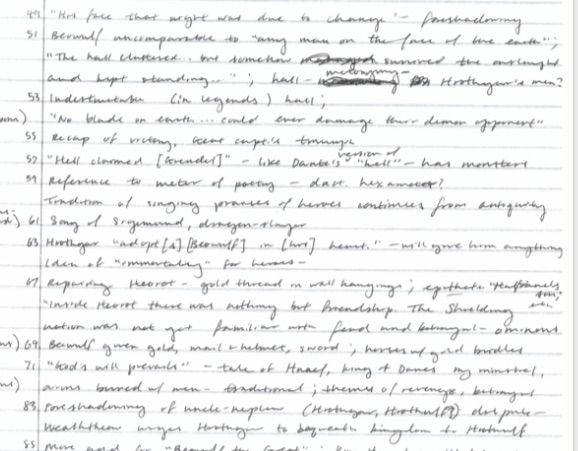 49 "His fate that night was due to change" - foreshadowing
51 Beowulf uncomparable to "any man on the face of the earth";
"The hall clattered... but somehow survived the onslaught
and kept standing..."; hall - metonymy - Hrothgar's men?
53 Indestructable (in legends) hall;
"No blade on earth... could ever damage their demon opponent"
55 Recap of victory, Geat captain triumph
57 "Hell claimed [Grendel]" - like Dante's version of "hell" - has monsters
59 Reference to meter of poetry - dact. hexameter?
Tradition of singing praises of heroes continues from antiquity
61 Song of Sigemund, dragon-slayer
63 Hrothgar "adopt[s] [Beowulf] in [his] heart." - will give him anything
Idea of "immortality" for heroes -
67 Repairing Heorot - gold thread on wall hangings; epithets
"Inside Heorot there was nothing but friendship. The Shielding
nation was not yet familiar with feud and betrayal - ominous
69 Beowulf given gold, mail & helmet, sword; horses w/ gold bridles
71 "God's will prevails" - tale of Hnaef, king of Danes by minstrel,
burned w/ men - traditional; themes of revenge, betrayal
83 Foreshadowing of uncle-nephew (Hrothgar, Hrothulf)
Wealhtheow urges Hrothgar to bequeath kingdom to Hrothulf
85 More